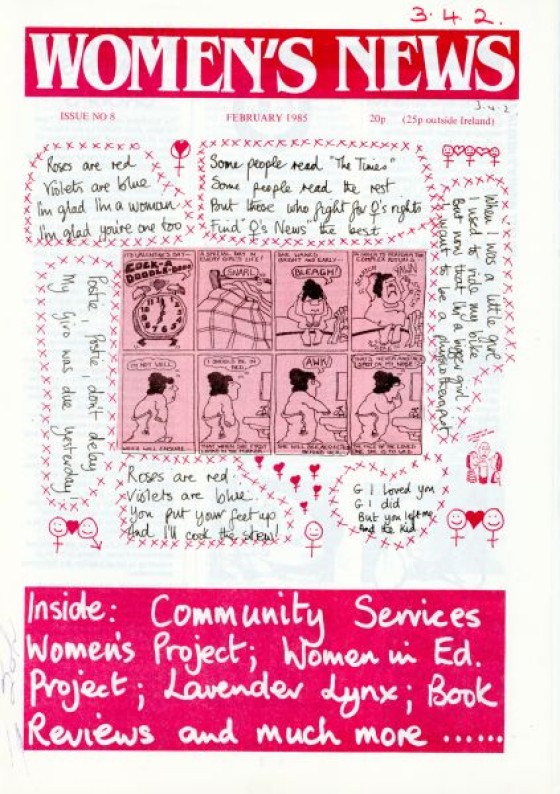 3.4.2.
WOMEN'S NEWS
3.4.2.
ISSUE NO 8 FEBRUARY 1985 20p (25p outside Ireland)
Roses are red
Violets are blue
I'm glad I'm a woman
I'm glad you're one too
Some people read "The Times"
Some people read the rest
But those who fight for ♀'s rights
Find ♀'s News the best
When I was a little girl
I used to ride my bike
But now that I'm a bigger girl,
I want to be a physiotherapist
Postie, Postie, don't delay
My Giro was due yesterday!
IT'S VALENTINE'S DAY—
COCK-A
DOODLE-DOOO
A SPECIAL DAY IN
EVERY GIRL'S LIFE!
SNARL
SHE WAKES
BRIGHT AND EARLY--
BLEAGH!
COMPLEX RITUALS
YAWN
I'M NOT WELL
I SHOULD BE IN
BED..
THAT WHEN SHE FIRST
LOOKS IN THE MIRROR
AWK!
SHE WILL SEE
THAT'S NEVER ANOTHER
SPOT ON MY NOSE
THE FACE OF THE LOVED
ONE SHE IS TO WED.
Roses are red
Violets are blue
You put your feet up
And I'll cook the stew!
G I loved you
G I did
But you left me
And the kid
Inside: Community Services
Women's Project; Women in Ed.
Project; Lavender Lynx; Book
Reviews and much more ......